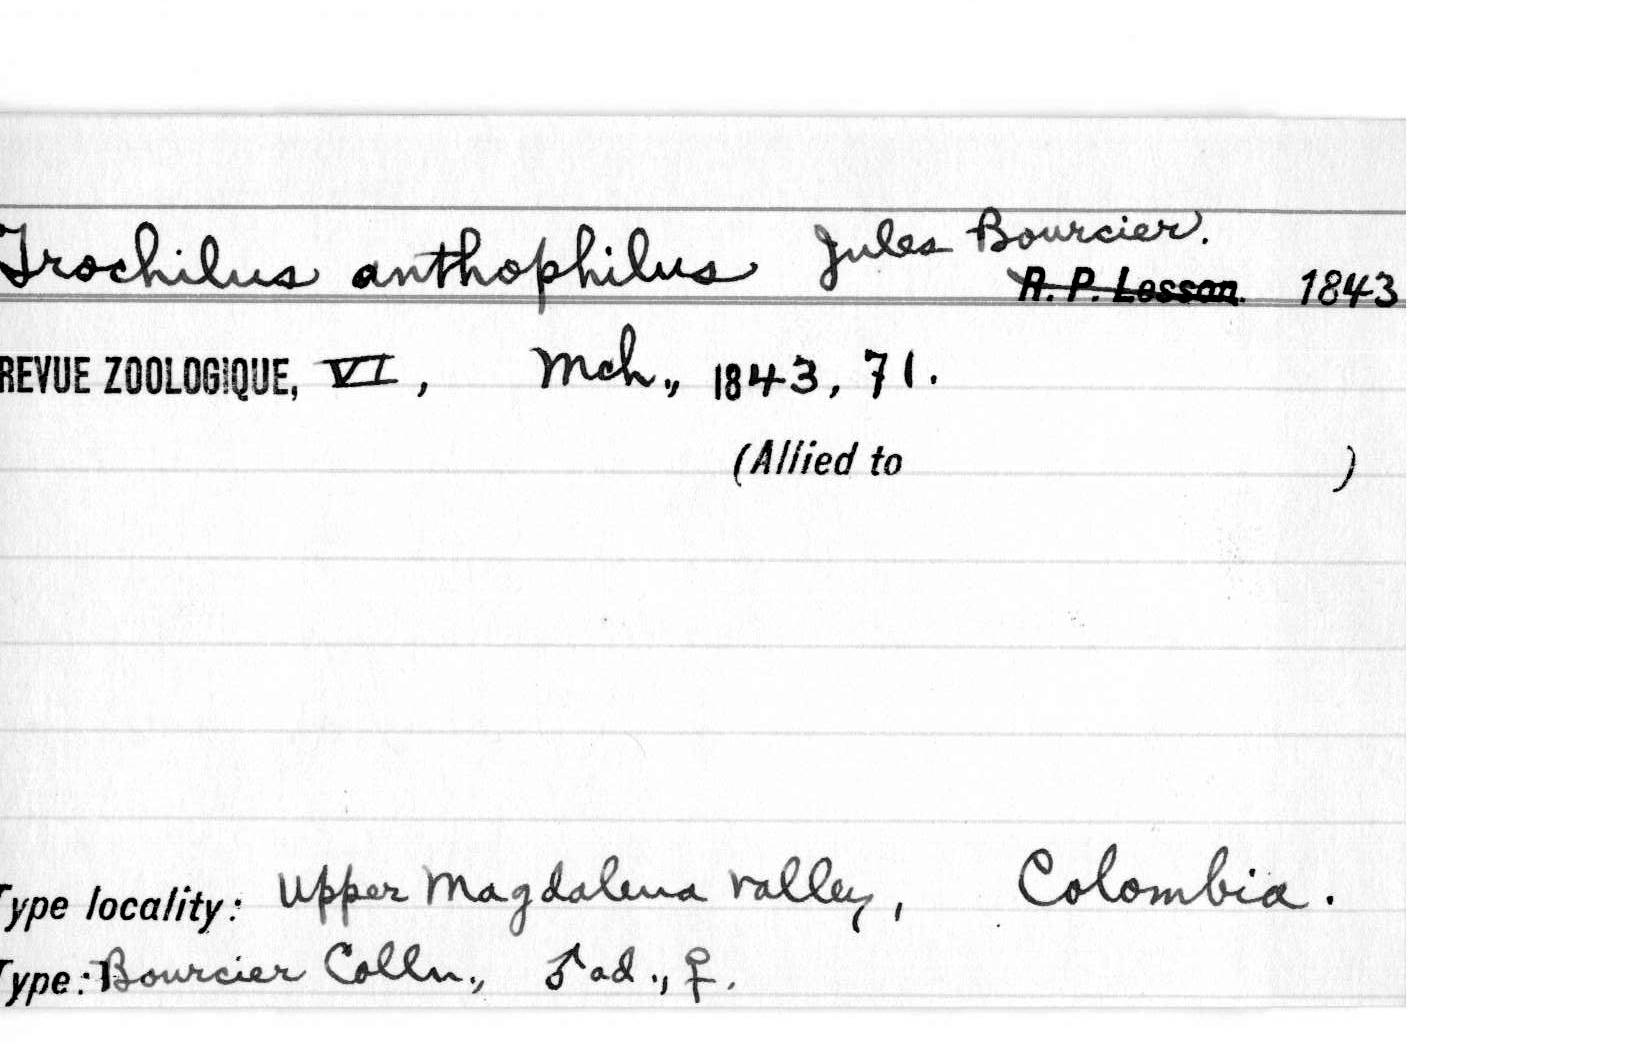 Trochilus anthophilus Jules Bourcier.
R. P. Lesson. 1843
REVUE ZOOLOGIQUE, VI, Mch., 1843, 71.
(Allied to )
Type locality: Upper Magdalena valley, Colombia.
Type: Bourcier Colln., ♂ ad., ♀.